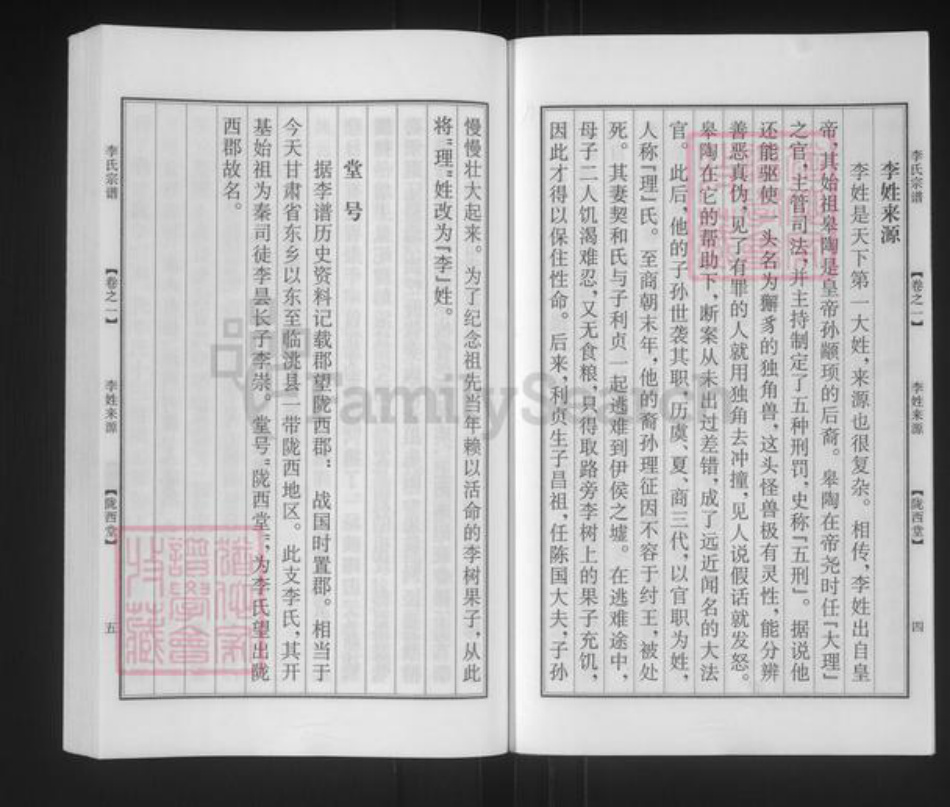 李氏宗谱
【卷之一】
李姓来源
【陇西堂】
四
李姓来源
李姓是天下第一大姓,来源也很复杂。相传,李姓出自皇
帝,其始祖皋陶是皇帝孙颛顼的后裔。皋陶在帝尧时任『大理』
之官,主管司法,并主持制定了五种刑罚,史称『五刑』。据说他
还能驱使一头名为獬豸的独角兽,这头怪兽极有灵性,能分辨
善恶真伪,见了有罪的人就用独角去冲撞,见人说假话就发怒。
皋陶在它的帮助下,断案从未出过差错,成了远近闻名的大法
官。此后,他的子孙世袭其职,历虞、夏、商三代,以官职为姓,
人称『理』氏。至商朝末年,他的裔孙理征因不容于纣王,被处
死。其妻契和氏与子利贞一起逃难到伊侯之墟。在逃难途中,
母子二人饥渴难忍,又无食粮,只得取路旁李树上的果子充饥,
因此才得以保住性命。后来,利贞生子昌祖,任陈国大夫,子孙
慢慢壮大起来。为了纪念祖先当年赖以活命的李树果子,从此
将“理”姓改为『李』姓。
堂号
据李谱历史资料记载郡望陇西郡:战国时置郡。相当于
今天甘肃省东乡以东至临洮县一带陇西地区。此支李氏,其开
基始祖为秦司徒李昙长子李崇。堂号“陇西堂”,为李氏望出陇
西郡故名。
李氏宗谱
【卷之一】
李姓来源
【陇西堂】
五
FamilySearch